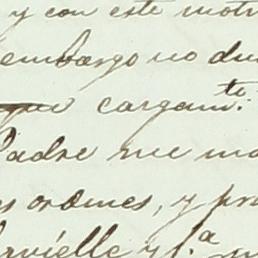 y con este motiv
embargo no du
cargamte.
Padre me ma
s ordenes, y pr